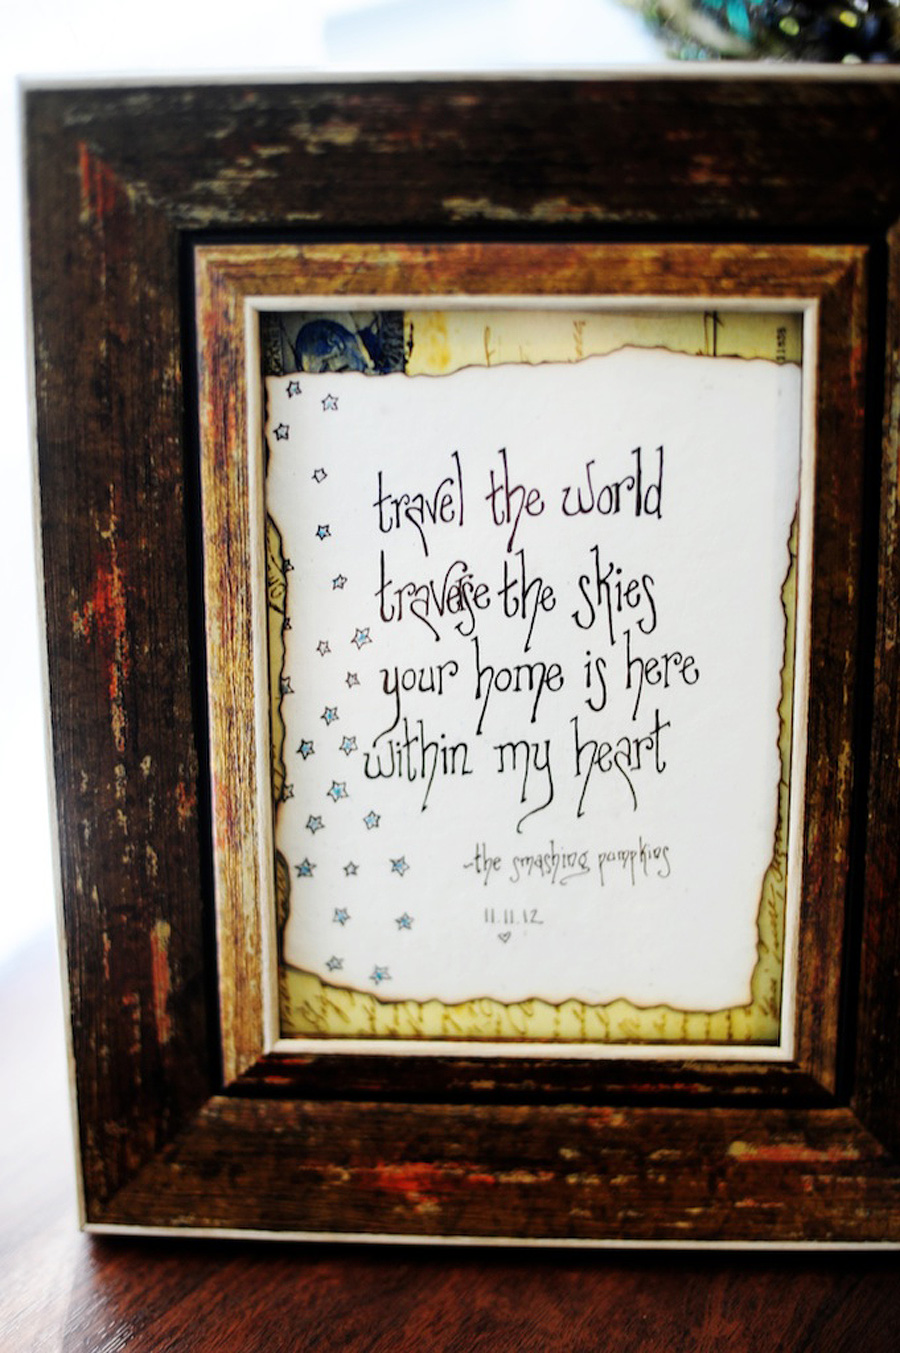 travel the world
traverse the skies
your home is here
within my heart
-the smashing pumpkins
11.11.12